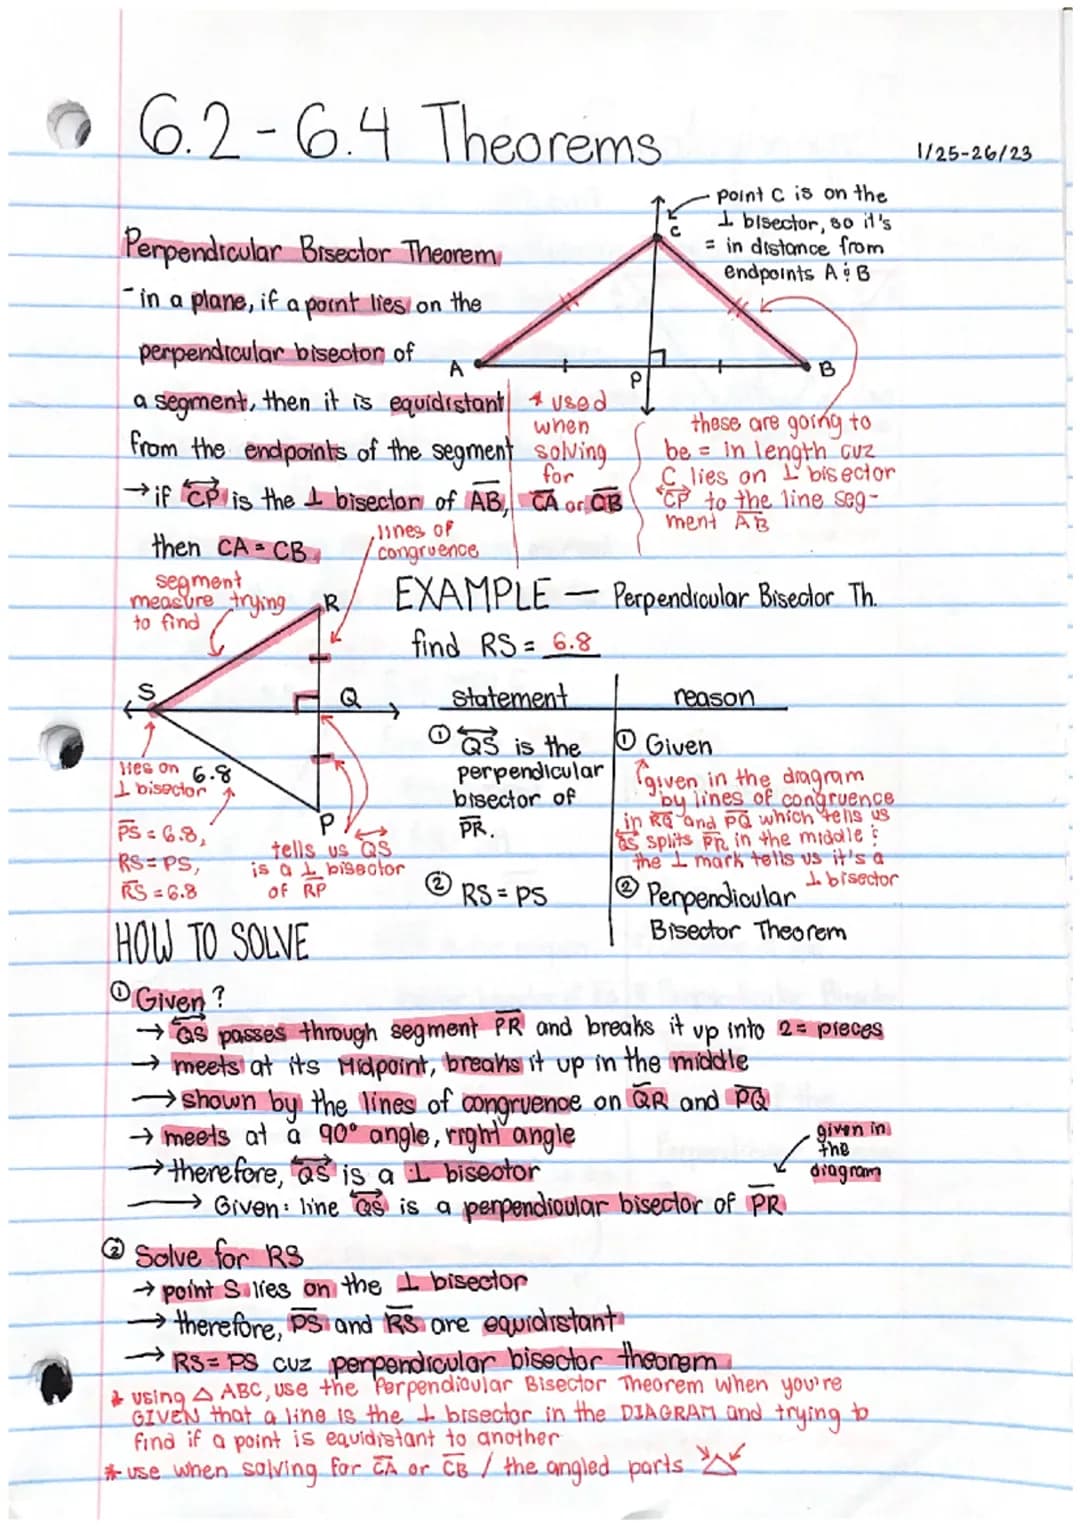 6.2-6.4 Theorems
1/25-26/23
point C is on the
⊥ bisector, so it's
= in distance from
endpoints A & B
C
Perpendicular Bisector Theorem
- in a plane, if a point lies on the
perpendicular bisector of
a segment, then it is equidistant
from the endpoints of the segment
→ if CP is the ⊥ bisector of AB,
then CA = CB
A
P
B
* used
when
solving
for
CA or CB
these are going to
be = in length cuz
C lies on ⊥ bisector
CP to the line seg-
ment AB
lines of
congruence
segment
measure trying
to find
R
S
Q
P
lies on
⊥ bisector
6.8
PS = 6.8,
RS = PS,
RS = 6.8
tells us QS
is a ⊥ bisector
of RP
EXAMPLE — Perpendicular Bisector Th.
find RS = 6.8
statement
reason
① QS is the
perpendicular
bisector of
PR.
① Given
given in the diagram
by lines of congruence
in RQ and PQ which tells us
QS splits PR in the middle &
the ⊥ mark tells us it's a
⊥ bisector
② RS = PS
② Perpendicular
Bisector Theorem
HOW TO SOLVE
① Given?
→ QS passes through segment PR and breaks it up into 2 = pieces
→ meets at its Midpoint, breaks it up in the middle
→ shown by the lines of congruence on QR and PQ
→ meets at a 90° angle, right angle
→ therefore, QS is a ⊥ bisector
→ Given: line QS is a perpendicular bisector of PR
given in
the
diagram
② Solve for RS
→ point S lies on the ⊥ bisector
→ therefore, PS and RS are equidistant
→ RS = PS cuz perpendicular bisector theorem
* using △ ABC, use the Perpendicular Bisector Theorem when you're
GIVEN that a line is the ⊥ bisector in the DIAGRAM and trying to
find if a point is equidistant to another
* use when solving for CA or CB / the angled parts